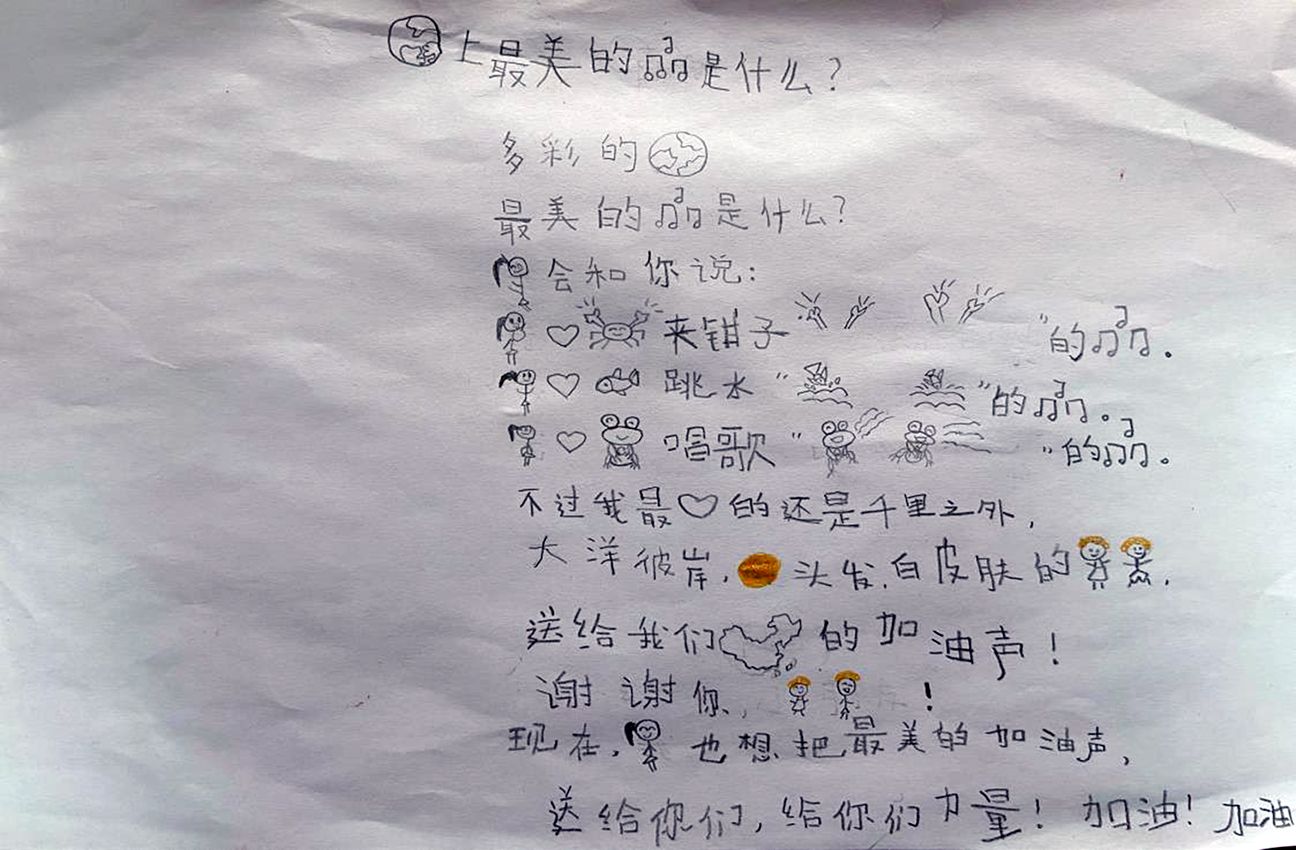 上最美的是什么?
多彩的
最美的是什么?
会和你说:
来钳子 "的 。
跳水 " "的 。
唱歌 " "的 。
不过我最的还是千里之外,
大洋彼岸,头发,白皮肤的 ,
送给我们的加油声!
谢谢你、 !
现在,也想把最美的加油声,
送给你们,给你们力量! 加油! 加油